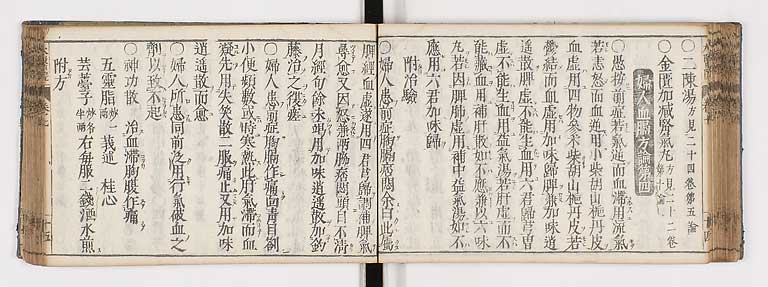 ○二陳湯方見二十四卷第五論
○金匱加減腎氣丸方見二十二卷第十論
婦人血膈方論第四
○愚按前症若氣逆而血滯用流氣
若恚怒而血逆用小柴胡山梔丹皮若
血虛用四物參朮柴胡山梔丹皮若
鬱結而血虛用加味歸脾兼加味逍
遙散脾虛不能生血用六君歸芎胃
虛不能生血用益氣湯若肝虛而不
能藏血用補肝散如不應兼以六味
丸若因脾肺虛用補中益氣湯如不
應用六君加味歸
附治驗
○婦人患前症胸腸痞悶余曰此屬
脾經血虛遂用四君芎歸調補脾氣
尋愈又因怒兼兩脇痞悶頭目不清
月經旬餘未竭用加味逍遙散加鈎
藤治之復瘥
○婦人患前症胸腸作痛面青目劄
小便頻數或時寒熱此肝氣滯而血
凝先用失笑散二服痛止又用加味
逍遙散而愈
○婦人所患同前泛用行氣破血之
劑以致不起
○神功散 治血滯胸腹作痛
五靈脂 莪朮 桂心
芸薹子 右每服二錢酒水煎
附方